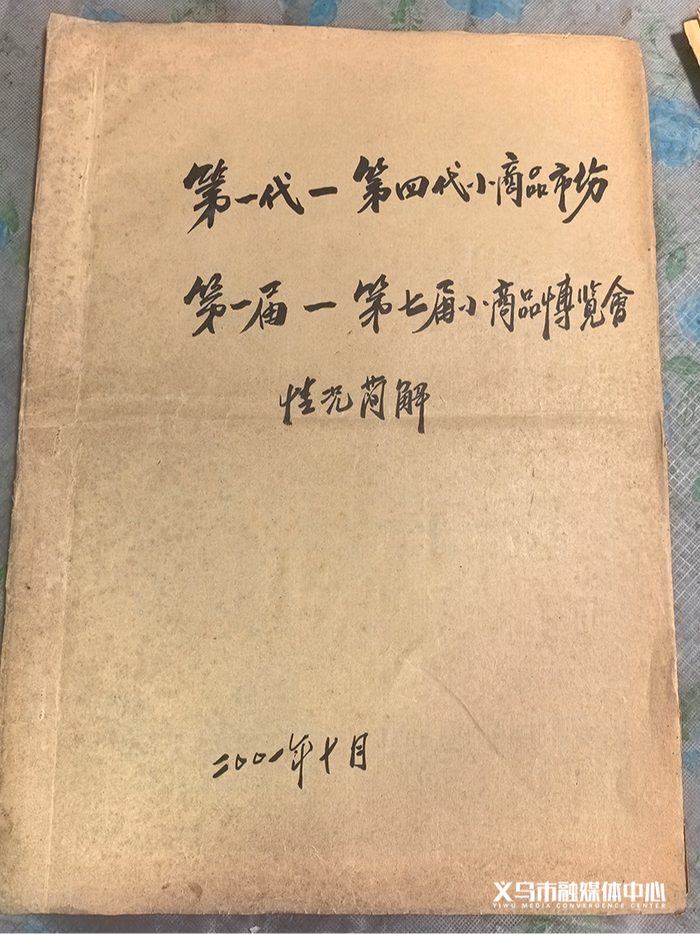 第一代一第四代小商品市场
第一届一第七届小商品博览會
情况简解
二〇〇一年十月
义乌市融媒体中心
YIWU MEDIA CONVERGENCE CENTER